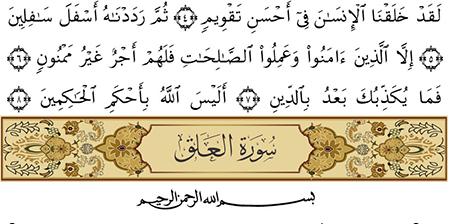 لَقَدْ خَلَقْنَا الْإِنسَـٰنَ فِىٓ أَحْسَنِ تَقْوِيمٍ ﴿٤﴾ ثُمَّ رَدَدْنَـٰهُ أَسْفَلَ سَـٰفِلِينَ
﴿٥﴾ إِلَّا الَّذِينَ ءَامَنُوا۟ وَعَمِلُوا۟ الصَّـٰلِحَـٰتِ فَلَهُمْ أَجْرٌ غَيْرُ مَمْنُونٍ ﴿٦﴾
فَمَا يُكَذِّبُكَ بَعْدُ بِالدِّينِ ﴿٧﴾ أَلَيْسَ اللَّهُ بِأَحْكَمِ الْحَـٰكِمِينَ ﴿٨﴾
سُورَةُ الْعَلَق
بسم الله الرحمن الرحيم